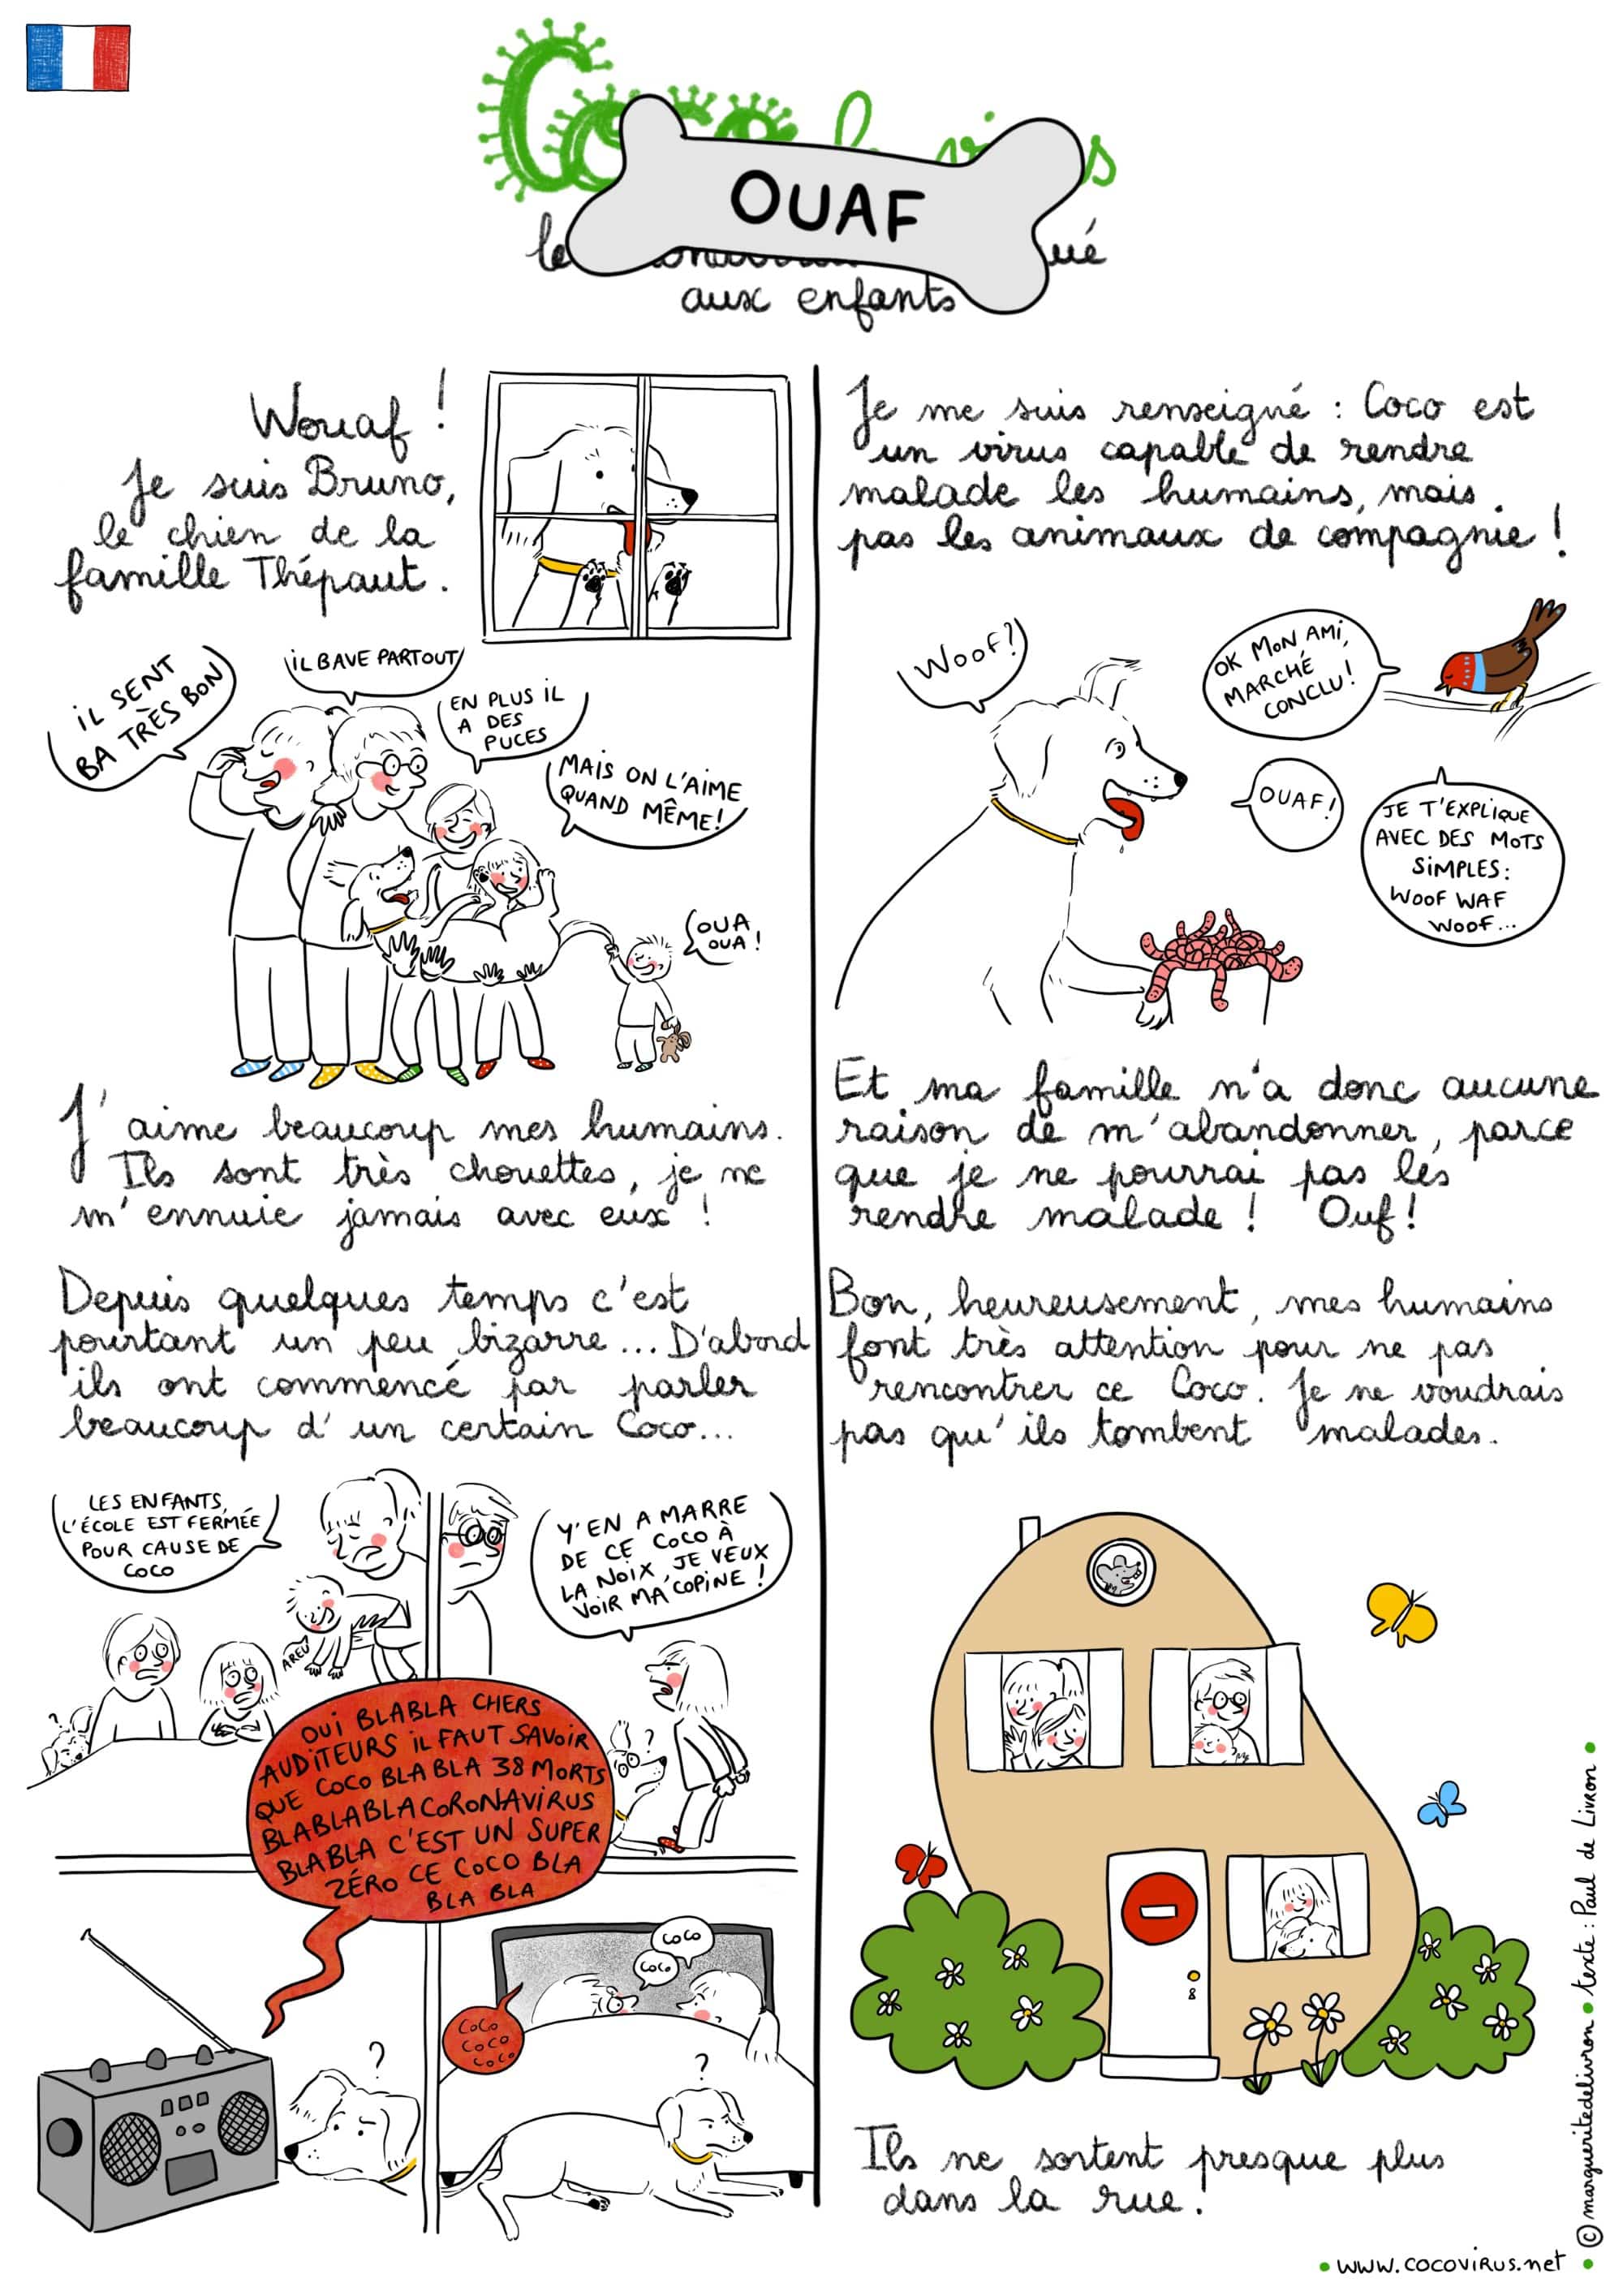 Coco le virus
OUAF
le
ué
aux enfants
Wouaf !
Je suis Bruno,
le chien de la
famille Thépaut.
iL SENT
BA TRÈS BON
iL BAVE PARTOUT
EN PLUS iL
A DES
PUCES
MAIS ON L'AIME
QUAND MÊME!
OUA
OUA !
J'aime beaucoup mes humains.
Ils sont très chouettes, je ne
m'ennuie jamais avec eux !
Depuis quelques temps c'est
pourtant un peu bizarre... D'abord
ils ont commencé par parler
beaucoup d'un certain Coco...
LES ENFANTS,
L'ÉCOLE EST FERMÉE
POUR CAUSE DE
COCO
AREU
?
Y'EN A MARRE
DE CE COCO À
LA NOIX, JE VEUX
VOIR MA COPINE !
?
OUi BLABLA CHERS
AUDiTEURS iL FAUT SAVOiR
QUE COCO BLA BLA 38 MORTS
BLABLABLA CORONAViRUS
BLABLA C'EST UN SUPER
ZÉRO CE COCO BLA
BLA BLA
?
COCO
COCO
COCO
COCO
COCO
?
Je me suis renseigné : Coco est
un virus capable de rendre
malade les humains, mais
pas les animaux de compagnie !
Woof?
OK MON AMi,
MARCHÉ
CONCLU!
OUAF!
JE T'EXPLiQUE
AVEC DES MOTS
SiMPLES:
WOOF WAF
WOOF...
Et ma famille n'a donc aucune
raison de m'abandonner, parce
que je ne pourrai pas les
rendre malade ! Ouf!
Bon, heureusement, mes humains
font très attention pour ne pas
rencontrer ce Coco. Je ne voudrais
pas qu'ils tombent malades.
Ils ne sortent presque plus
dans la rue.
© margueritedelivron • texte : Paul de Livron •
• www.cocovirus.net •